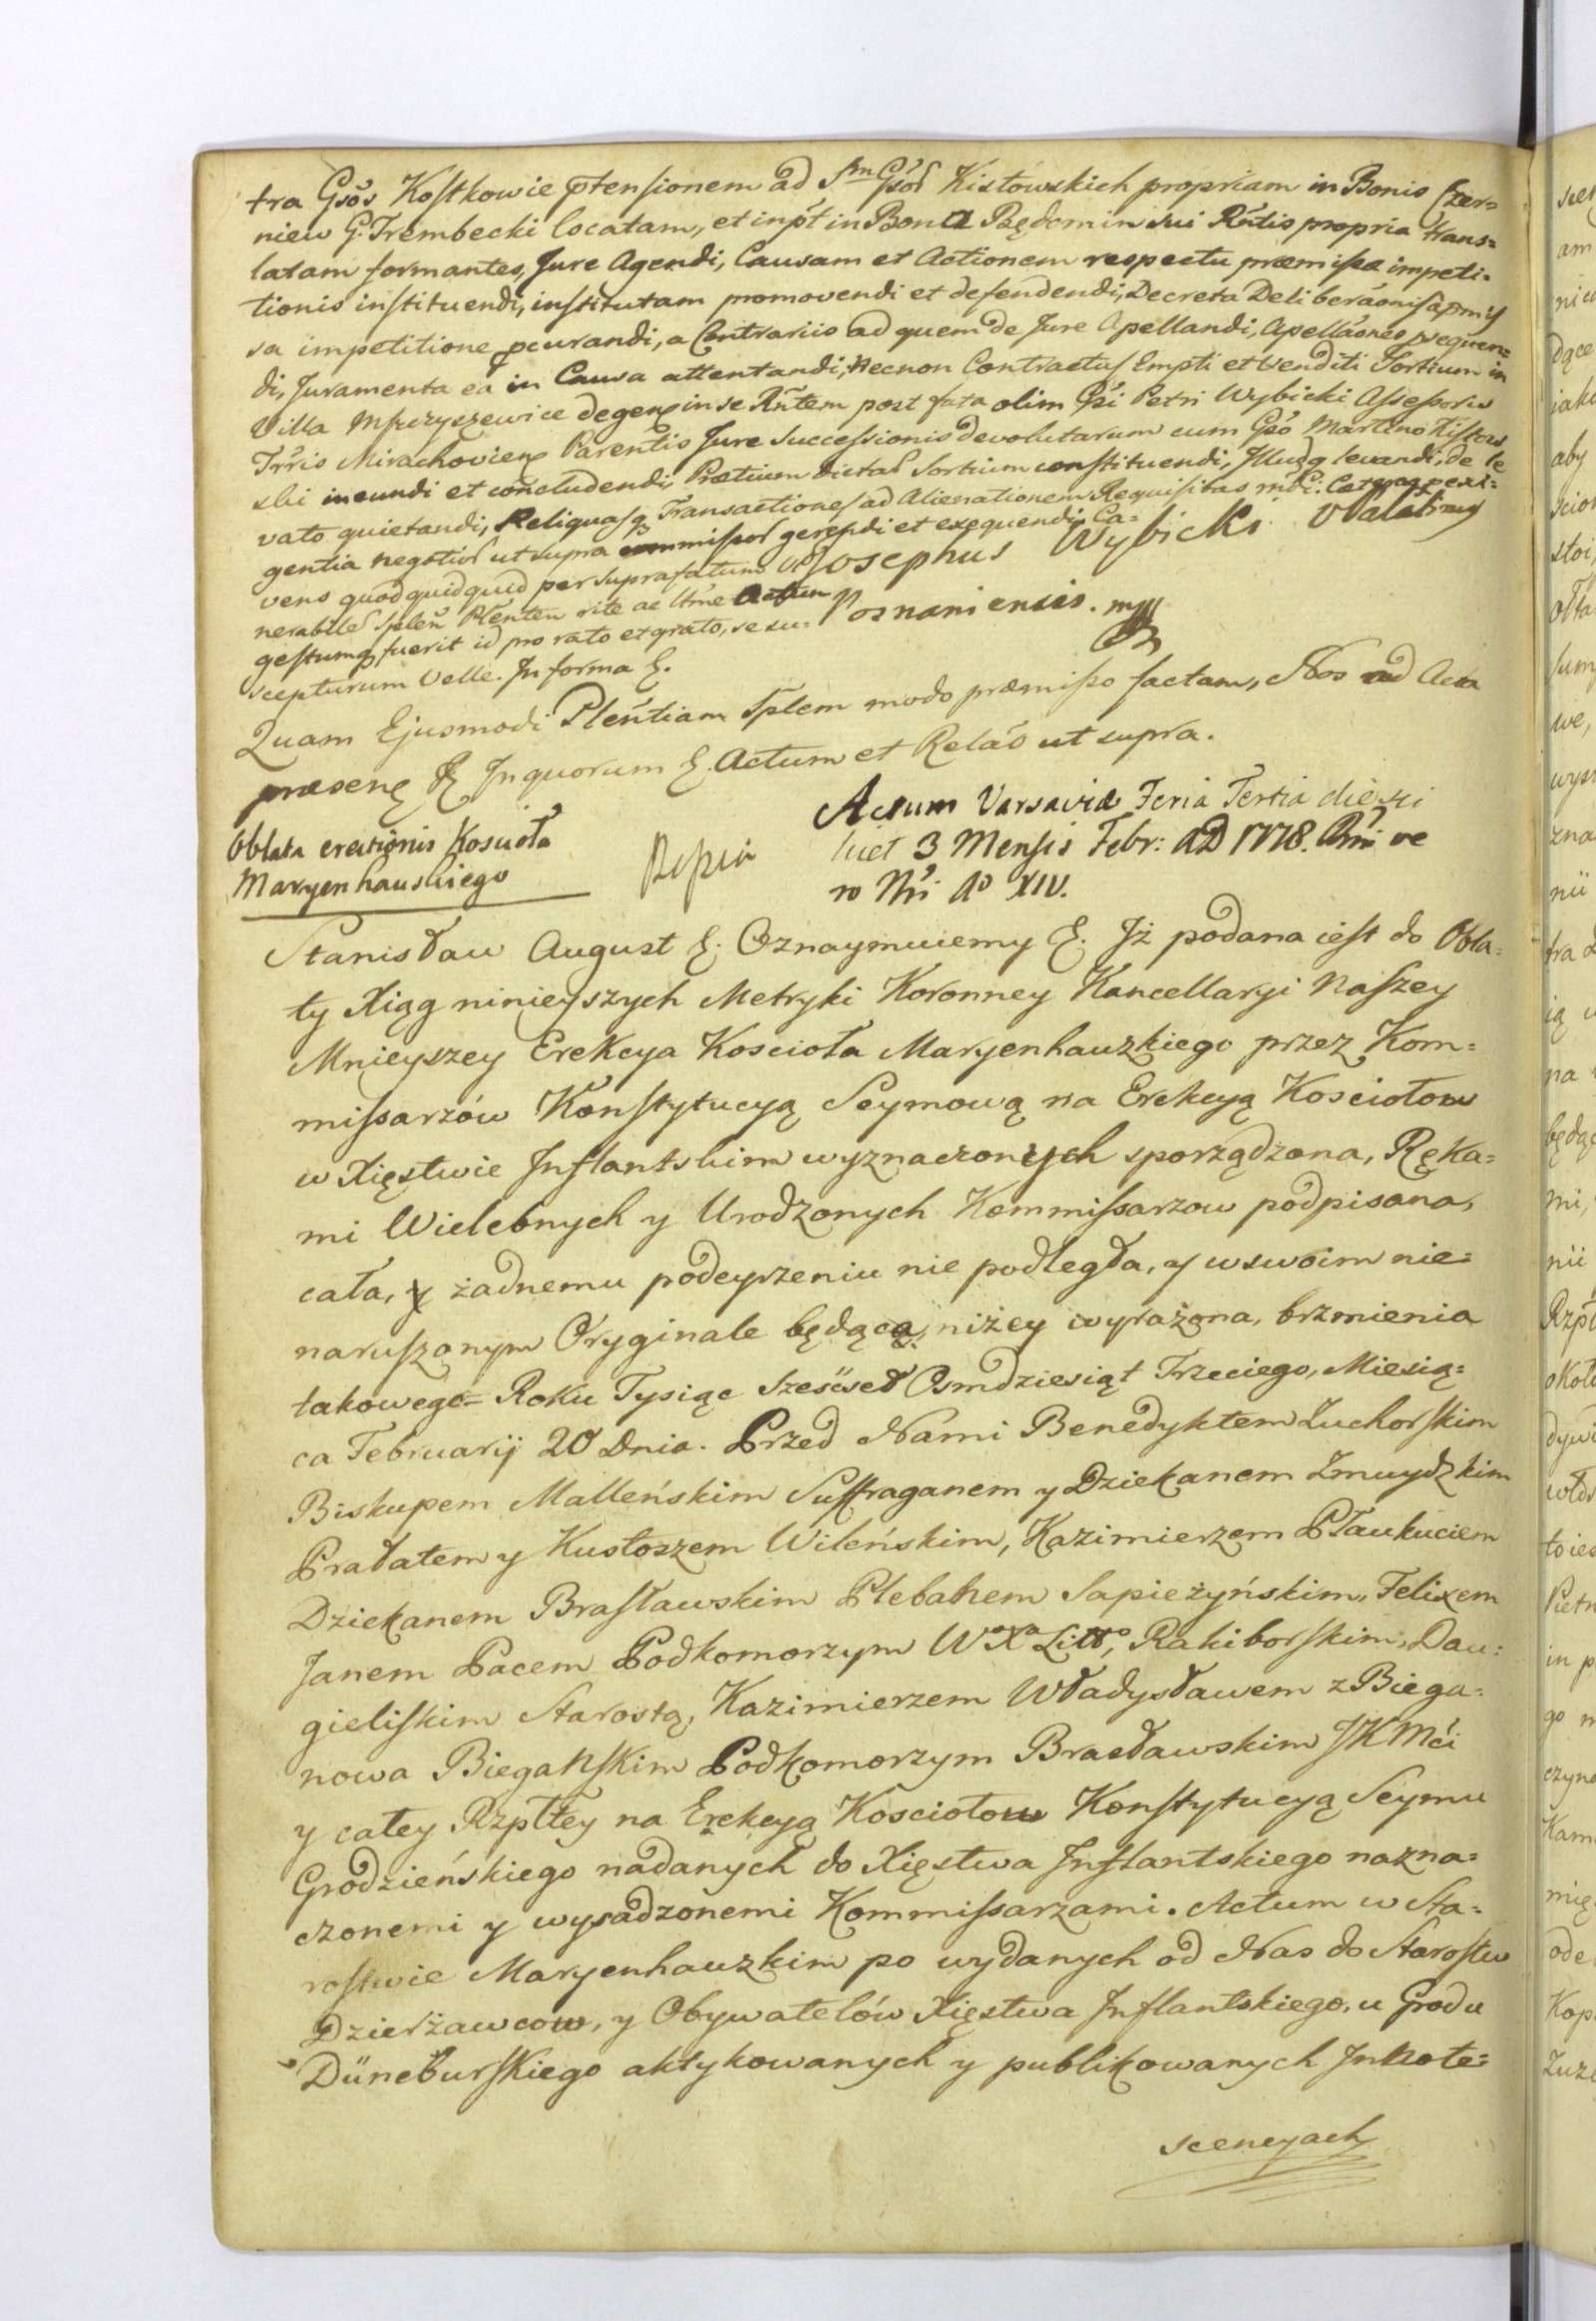 tra Gsos Kostkowie ptensionem ad Sm Gsos Kistowskich propriam in Bonis Czer=
niew G. Trembecki locatam, et inpt in Bona Będomin sui Rntis propria trans=
latam formantes, Jure Agendi, Causam et Actionem respectu præmissæ impeti=
tionis instituendi, institutam promovendi et defendendi, Decreta Deliberaonis apmis
sa impetitione pcurandi, a Contrariis ad quem de Jure Apellandi, Apellaones psequen=
di, Juramenta ea in Causa attentandi, Necnon Contractus Empti et Venditi Sortium in
Villa degen in se Rntem post fata olim Gsi Petri Wybicki Assessoris
Trris Mirachovien Parentis Jure Successionis devolutarum cum Gso Martino Kistow
ski ineundi et concludendi, Prætium dictas Sortium constituendi, Illudq levandi, de le
vato quietandi, Reliquasq Transactiones ad Alienationem Requisitas
gentia negotios ut supra commissos gerendi et exequendi Ca=
vens quod quidquid per suprafatum Josephus Wybicki
nerabilem Splen Plenten rite ac ltme Actum
gestumq fuerit id pro rato et grato, se su= Posnaniensis. mp
scepturum velle. In forma &.
Quam Ejusmodi Plentiam Splem modo præmisso factam, Nos ad Acta
præsen & In quorum &. Actum et Relao ut supra.
Oblata erectionis Koscioła
Maryenhauskiego
Actum Varsaviæ Feria Tertia die sci
licet 3 Mensis Febr: AD 1778. Rni ve
ro Nri Ao XIV.
Stanisław August &. Oznaymuiemy &. Jż podana iest do Obla=
ty Xiąg ninieyszych Metryki Koronney Kancellaryi Naszey
Mnieyszey Erekcya Koscioła Maryenhauzkiego przez Kom=
missarzów Konstytucyą Seymową na Erekcyą Kosciołow
w Xięstwie Inflantskim wyznaczonych sporządzona, Ręka=
mi Wielebnych y Urodzonych Kommissarzow podpisana,
cała, y żadnemu podeyrzeniu nie podległa, y w swoim nie=
naruszonym Oryginale będąca, niżey wyrażona, brzmienia
takowego= Roku Tysiąc Szescset Osmdziesiąt Trzeciego, Miesią=
ca Februarij 20 Dnia. Przed Nami Benedyktem Żuchorskim
Biskupem Malleńskim Suffraganem y Dziekanem Żmuydzkim
Prałatem y Kustoszem Wileńskim, Kazimierzem Płaukuciem
Dziekanem Brasławskim Plebanem Sapieżyńskim, Felixem
Janem Pacem Podkomorzym Wo Xa Litto, Rakiborskim, Dau=
gieliskim Starostą, Kazimierzem Władysławem z Biega=
nowa Biegańskim Podkomorzym Brasławskim JKMći
y całey Rzpltey na Erekcyą Kosciołow Konstytucyą Seymu
Grodzieńskiego nadanych do Xięstwa Inflantskiego nazna=
czonemi y wysadzonemi Kommissarzami. Actum w Sta=
rostwie Maryenhauzkim po wydanych od Nas do Starostw
Dzierżawcow, y Obywatelów Xięstwa Inflantskiego, u Grodu
Düneburskiego aktykowanych y publikowanych Innote=
scencyach